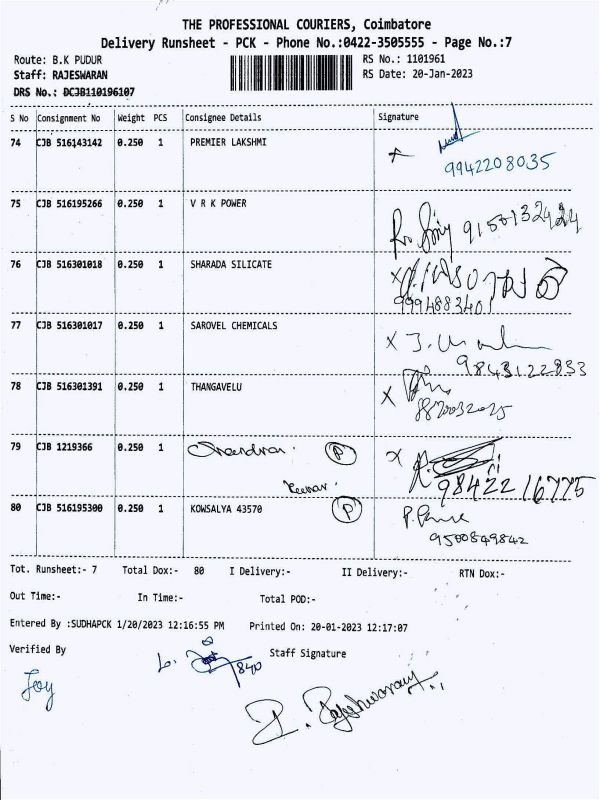 THE PROFESSIONAL COURIERS, Coimbatore
Delivery Runsheet - PCK - Phone No.:0422-3505555 - Page No.:7
Route: B.K PUDUR RS No.: 1101961
Staff: RAJESWARAN RS Date: 20-Jan-2023
DRS No.: DCJB110196107
S No Consignment No Weight PCS Consignee Details Signature
74 CJB 516143142 0.250 1 PREMIER LAKSHMI
9942208035
75 CJB 516195266 0.250 1 V R K POWER
76 CJB 516301018 0.250 1 SHARADA SILICATE X
9994883401
77 CJB 516301017 0.250 1 SAROVEL CHEMICALS X
9843122833
78 CJB 516301391 0.250 1 THANGAVELU X
79 CJB 1219366 0.250 1 P X
9842216775
80 CJB 516195300 0.250 1 KOWSALYA 43570 P
9500849842
Tot. Runsheet:- 7 Total Dox:- 80 I Delivery:- II Delivery:- RTN Dox:-
Out Time:- In Time:- Total POD:-
Entered By :SUDHAPCK 1/20/2023 12:16:55 PM Printed On: 20-01-2023 12:17:07
Verified By Staff Signature
840
Joy